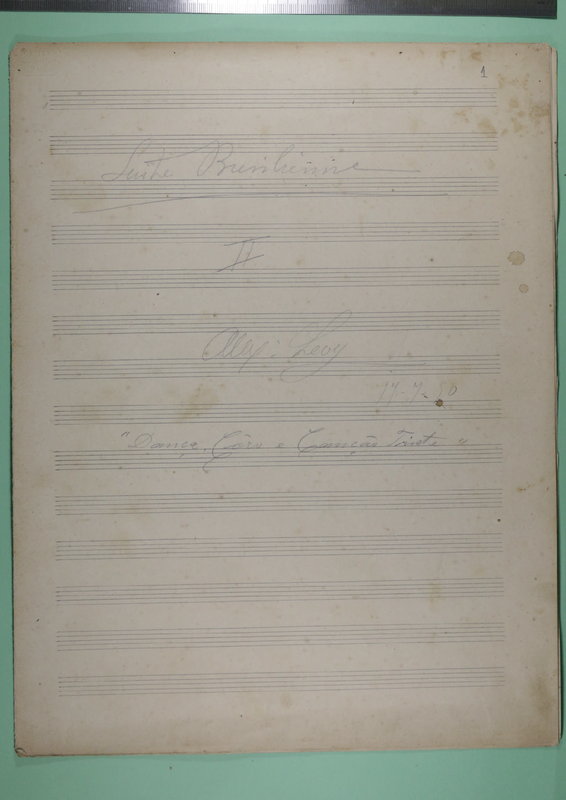 1
Suite Bresilienne
II
Alex. Levy
"Dança, Côro e Canção Triste"